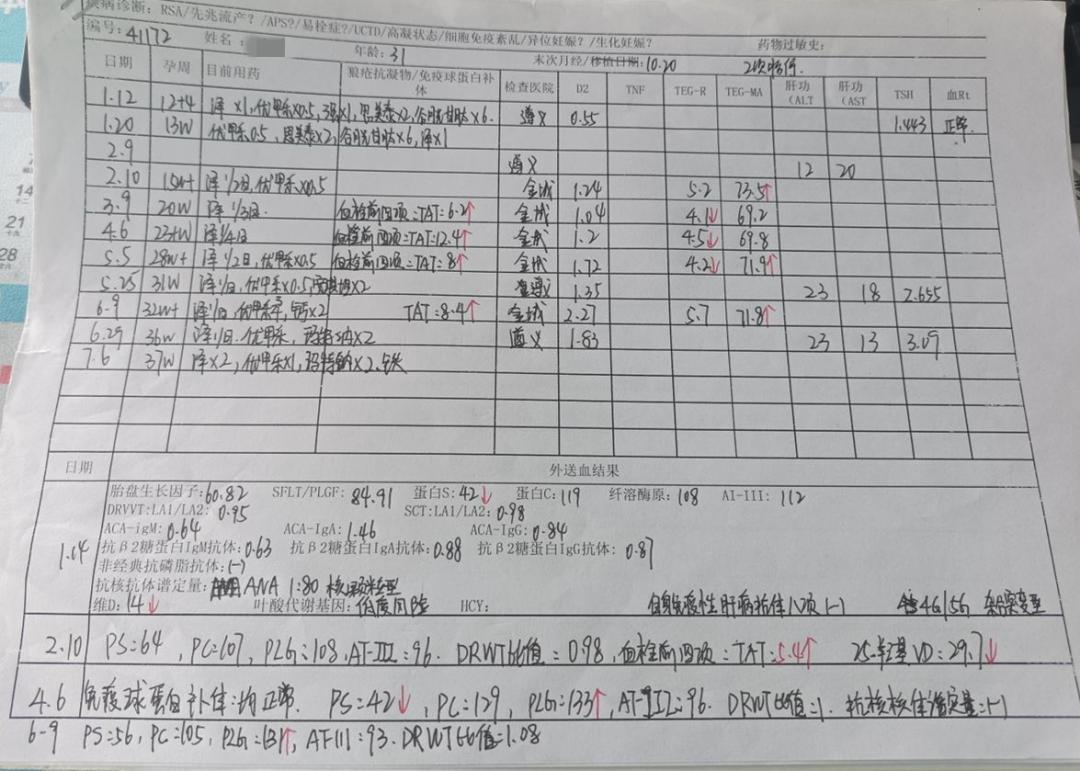 疾病诊断: RSA/先兆流产? /APS?/易栓症?/UCTD/高凝状态/细胞免疫紊乱/异位妊娠? /生化妊娠?
编号: 41172 姓名: 年龄: 31 末次月经/移植日期: 10.20 药物过敏史:
日期 孕周 目前用药 狼疮抗凝物/免疫球蛋白补体 检查医院 D2 TNF TEG-R TEG-MA 肝功(ALT 肝功(AST TSH 血Rt
1.12 12+4 泽x1,优甲乐x0.5,强x1,思美泰x2,谷胱甘肽x6. 遵义 0.55 1.443 正常.
1.20 13W 优甲乐0.5, 思美泰x2,谷胱甘肽x6,泽x1
2.9 遵义 12 20
2.10 15w+ 泽1/2日,优甲乐x0.5 金域 1.24 5.2 73.5↑
3.9 20W 泽1/3日. 血栓前四项:TAT:6.2↑ 金域 1.04 4.1↓ 69.2
4.6 23+W 泽1/4日 血栓前四项:TAT:12.4↑ 金域 1.2 4.5↓ 69.8
5.5 28W+ 泽1/2日,优甲乐x0.5 血栓前四项:TAT:8↑ 金域 1.72 4.2↓ 71.9↑
5.25 31W 泽1/日,优甲乐x0.5 x2 遵义 1.35 23 18 2.655
6.9 32w+ 泽1/日,优甲乐 钙x2 TAT:8.4↑ 金域 2.27 5.7 71.8↑
6.29 36w 泽1/日.优甲乐, 玛特纳x2 遵义 1.83 23 13 3.09
7.6 37W 泽x2,优甲乐x1,玛特纳x2.铁
日期 外送血结果
1.14 胎盘生长因子:60.82 SFLT/PLGF: 84.91 蛋白S:42↓ 蛋白C:119 纤溶酶原:108 AI-III: 112
DRVVT:LA1/LA2: 0.95 SCT:LA1/LA2: 0.98
ACA-igM: 0.64 ACA-IgA: 1.46 ACA-IgG: 0.84
抗β2糖蛋白IgM抗体: 0.63 抗β2糖蛋白IgA抗体: 0.88 抗β2糖蛋白IgG抗体: 0.87
非经典抗磷脂抗体:(-)
抗核抗体谱定量: ANA 1:80 核颗粒型
维D: 14↓ 叶酸代谢基因: 低度风险 HCY: 自身免疫性肝病抗体八项(-) 4G/5G 杂合突变型
2.10 PS=64, PC=107, PLG:108,AT-III:96. DRWT比值:0.98,血栓前四项:TAT:5.4↑ 25-羟基VD:29.7↓
4.6 免疫球蛋白补体:均正常. PS:42↓, PC:129, PLG:133↑,AT-III:96. DRWT比值:1. 抗核抗体谱定量:(-)
6-9 PS:56, PC:105, PLG:131↑, AT-III:93. DRWT比值:1.08